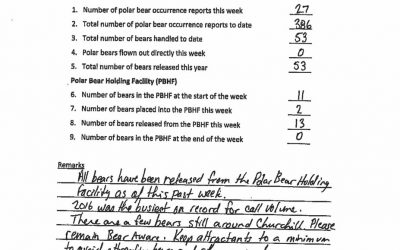 1. Number of polar bear occurrence reports this week 27
2. Total number of polar bear occurrence reports to date 386
3. Total number of bears handled to date 53
4. Polar bears flown out directly this week 0
5. Total number of bears released this year 53
Polar Bear Holding Facility (PBHF)
6. Number of bears in the PBHF at the start of the week 11
7. Number of bears placed into the PBHF this week 2
8. Number of bears released from the PBHF this week 13
9. Number of bears in the PBHF at the end of the week 0
Remarks
All bears have been released from the Polar Bear Holding
Facility as of this past week.
2016 was the busiest on record for call volume.
There are a few bears still around Churchill. Please
remain Bear Aware. Keep attractants to a minimum